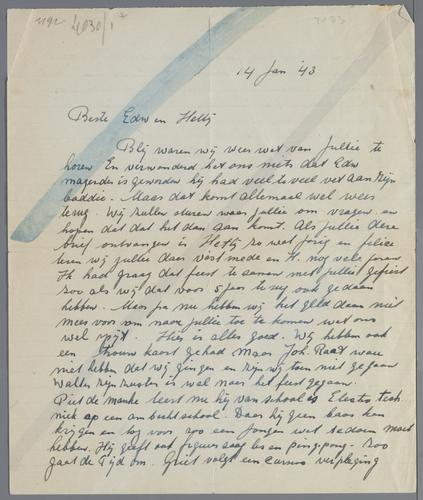 1192 4030/1
7033
14 Jan '43
Beste Edw en Hetty
Blij waren wij weer wat van jullie te
horen En verwonderd het ons niets dat Edw
magerder is geworden hij had veel te veel vet aan zijn
baddie. Maar dat komt allemaal wel weer
terug. Wij zullen sturen waar jullie om vragen en
hopen dat dat het dan aan komt. Als jullie deze
brief ontvangen is Hetty zo wat jarig en felici
teren wij jullie daar vast mede en H. nog vele jaren
Ik had graag dat feest te samen met jullie gevierd
zoo als wij dat voor 5 jaar terug ook gedaan
hebben. Maar nu hebben wij het geld daar niet
meer voor om naar jullie toe te komen wat ons
wel spijt. Hier is alles goed. Wij hebben ook
een trouw kaart gehad maar Joh. Raat ware
niet hebben dat wij gingen en zijn wij toen niet gegaan
Walter zijn zuster is wel naar het feest gegaan.
Piet de manke leest me hij van school is Electro tech
niek op een ambacht school. Daar hij geen baas kan
krijgen en tog voor zoo een jongen wat te doen moet
hebben. Hij geeft ook figuurzaag les en pingpong. Zoo
gaat de Tijd om. Griet volgt een cursus verpleging